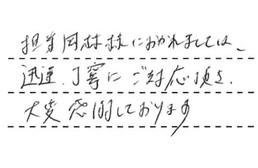 担当岡村様におかれましては、
迅速、丁寧にご対応頂き、
大変感謝しております